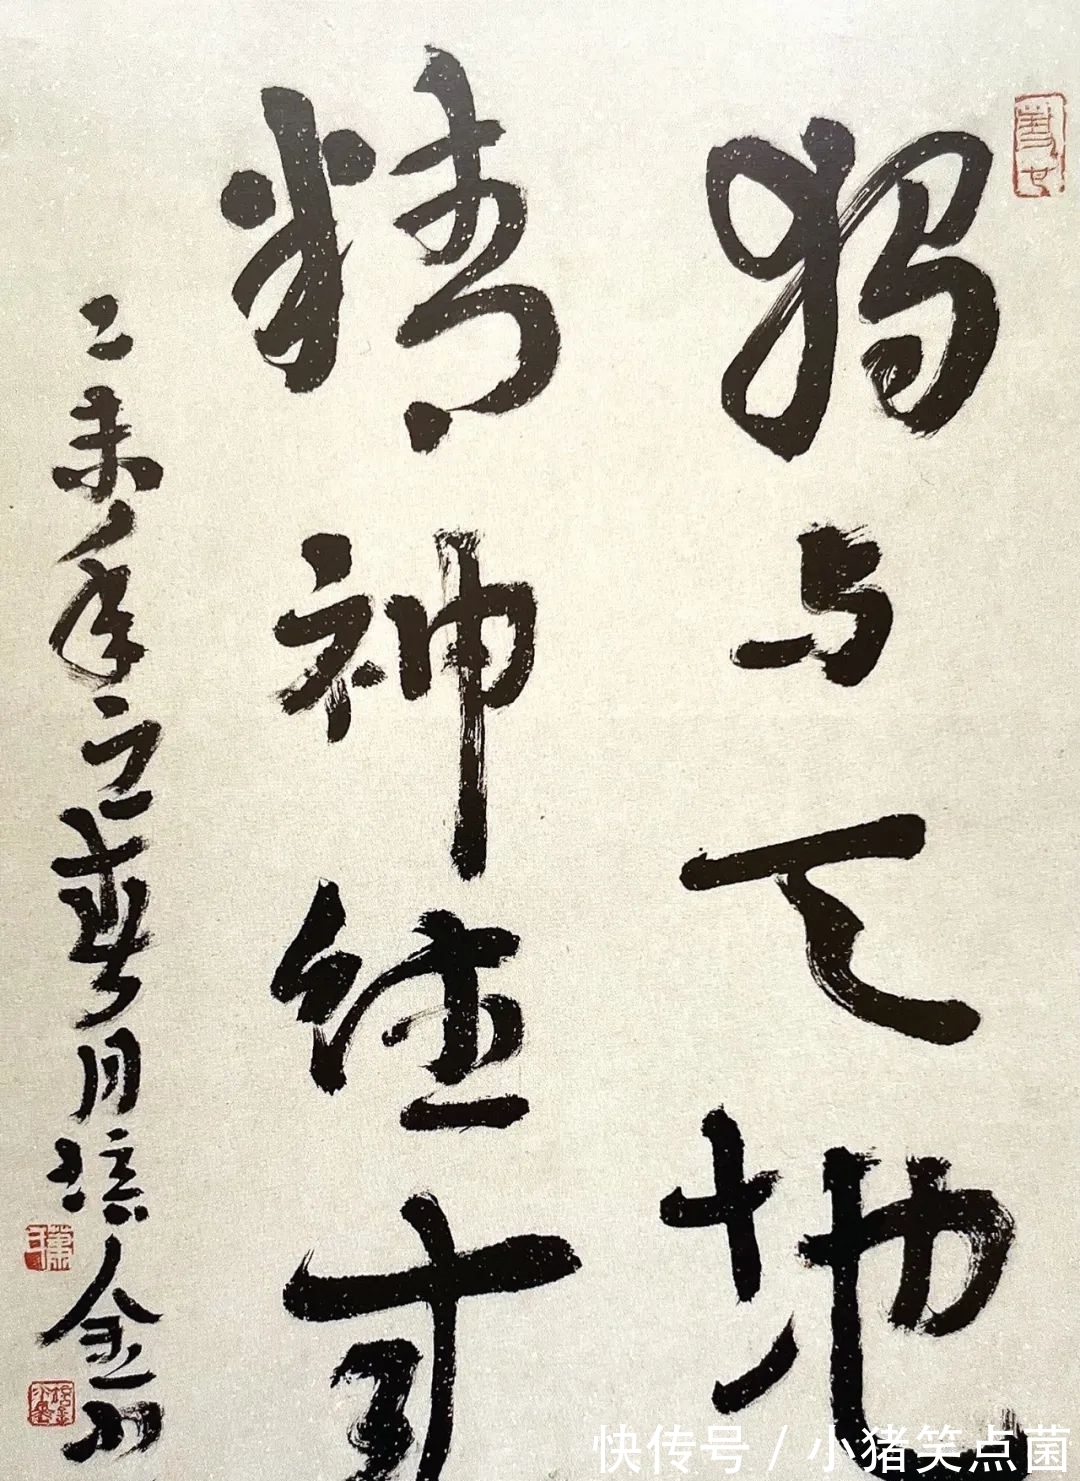 獨与天地
精神往来
乙未年之春月
快传号 / 小猪笑点菌